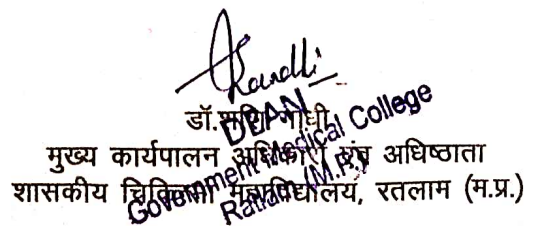 डॉ. शशि गांधी
मुख्य कार्यपालन अधिकारी एवं अधिष्ठाता
शासकीय चिकित्सा महाविद्यालय, रतलाम (म.प्र.)
DEAN
Government Medical College
Ratlam (M.P.)